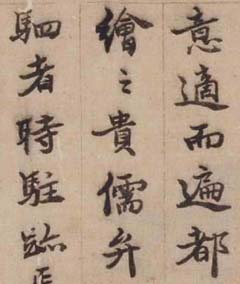 意適而遍都
繪之貴儒弁
駟者時駐